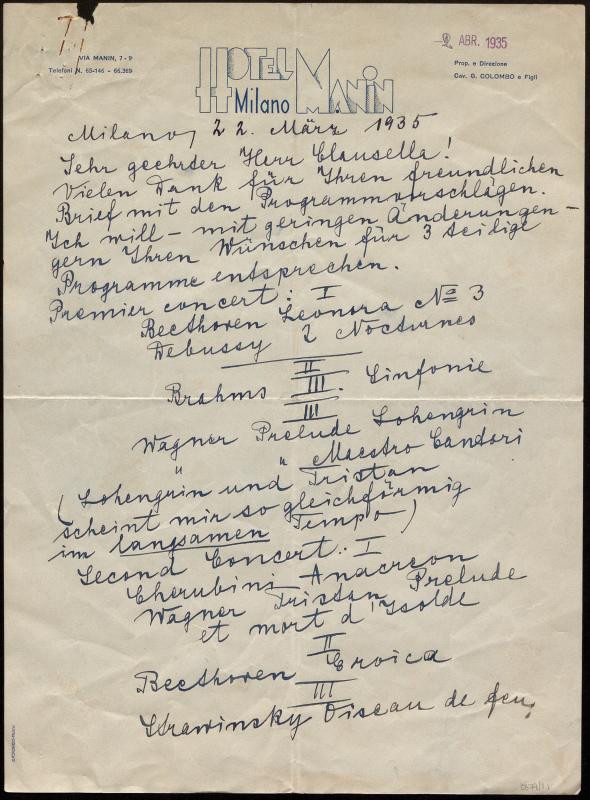 VIA MANIN, 7 - 9
Telefoni N. 65-146 - 66.369
HOTEL MANIN
Milano
2 ABR. 1935
Prop. e Direzione
Cav. G. COLOMBO e Figli
Milano, 22. März 1935
Sehr geehrter Herr Clausella!
Vielen Dank für Ihren freundlichen
Brief mit den Programmvorschlägen.
Ich will – mit geringen Änderungen –
gern Ihren Wünschen für 3 teilige
Programme entsprechen.
Premier concert: I
Beethoven Leonora No 3
Debussy 2 Nocturnes
II
Brahms III. Sinfonie
III
Wagner Prelude Lohengrin
" " Maestro Cantori
(Lohengrin und Tristan
scheint mir so gleichförmig
im langsamen Tempo)
Second Concert: I
Cherubini Anacreon
Wagner Tristan Prelude
et mort d'Isolde
II
Beethoven Eroica
III
Strawinsky Oiseau de feu,